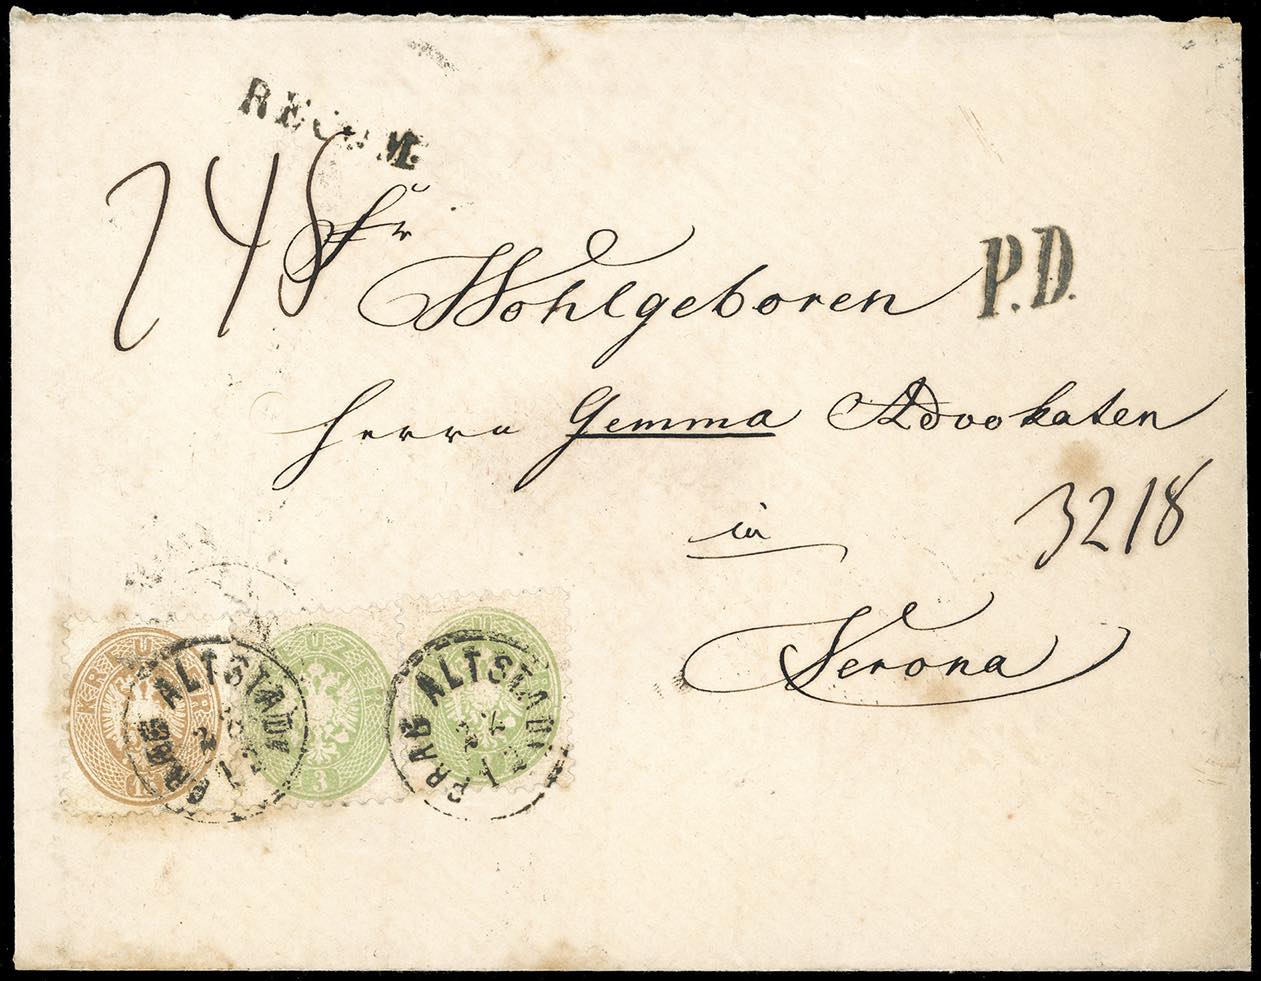 RECOM.
248
Sr
Wohlgeboren P.D.
Herrn Gemma Advokaten
in 3218
Verona
KREUZER PRAG ALTSTADT
KREUZER 3
PRAG ALTSTADT